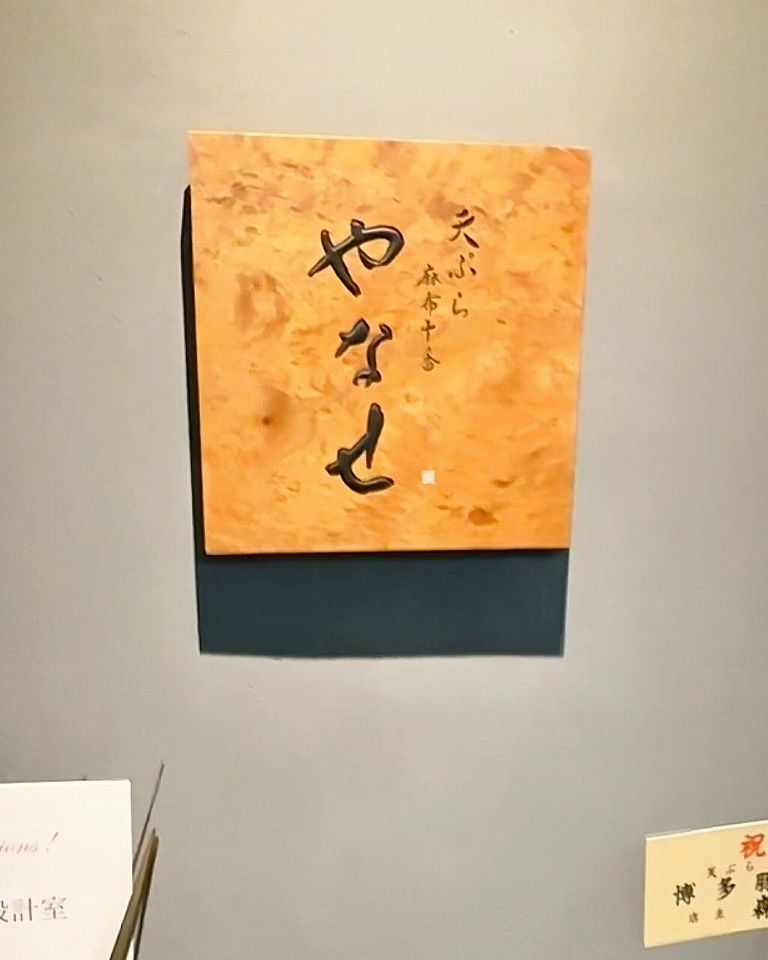 天ぷら
麻布十番
やなせ
ions!
設計室
祝
天ぷら
博多
店主